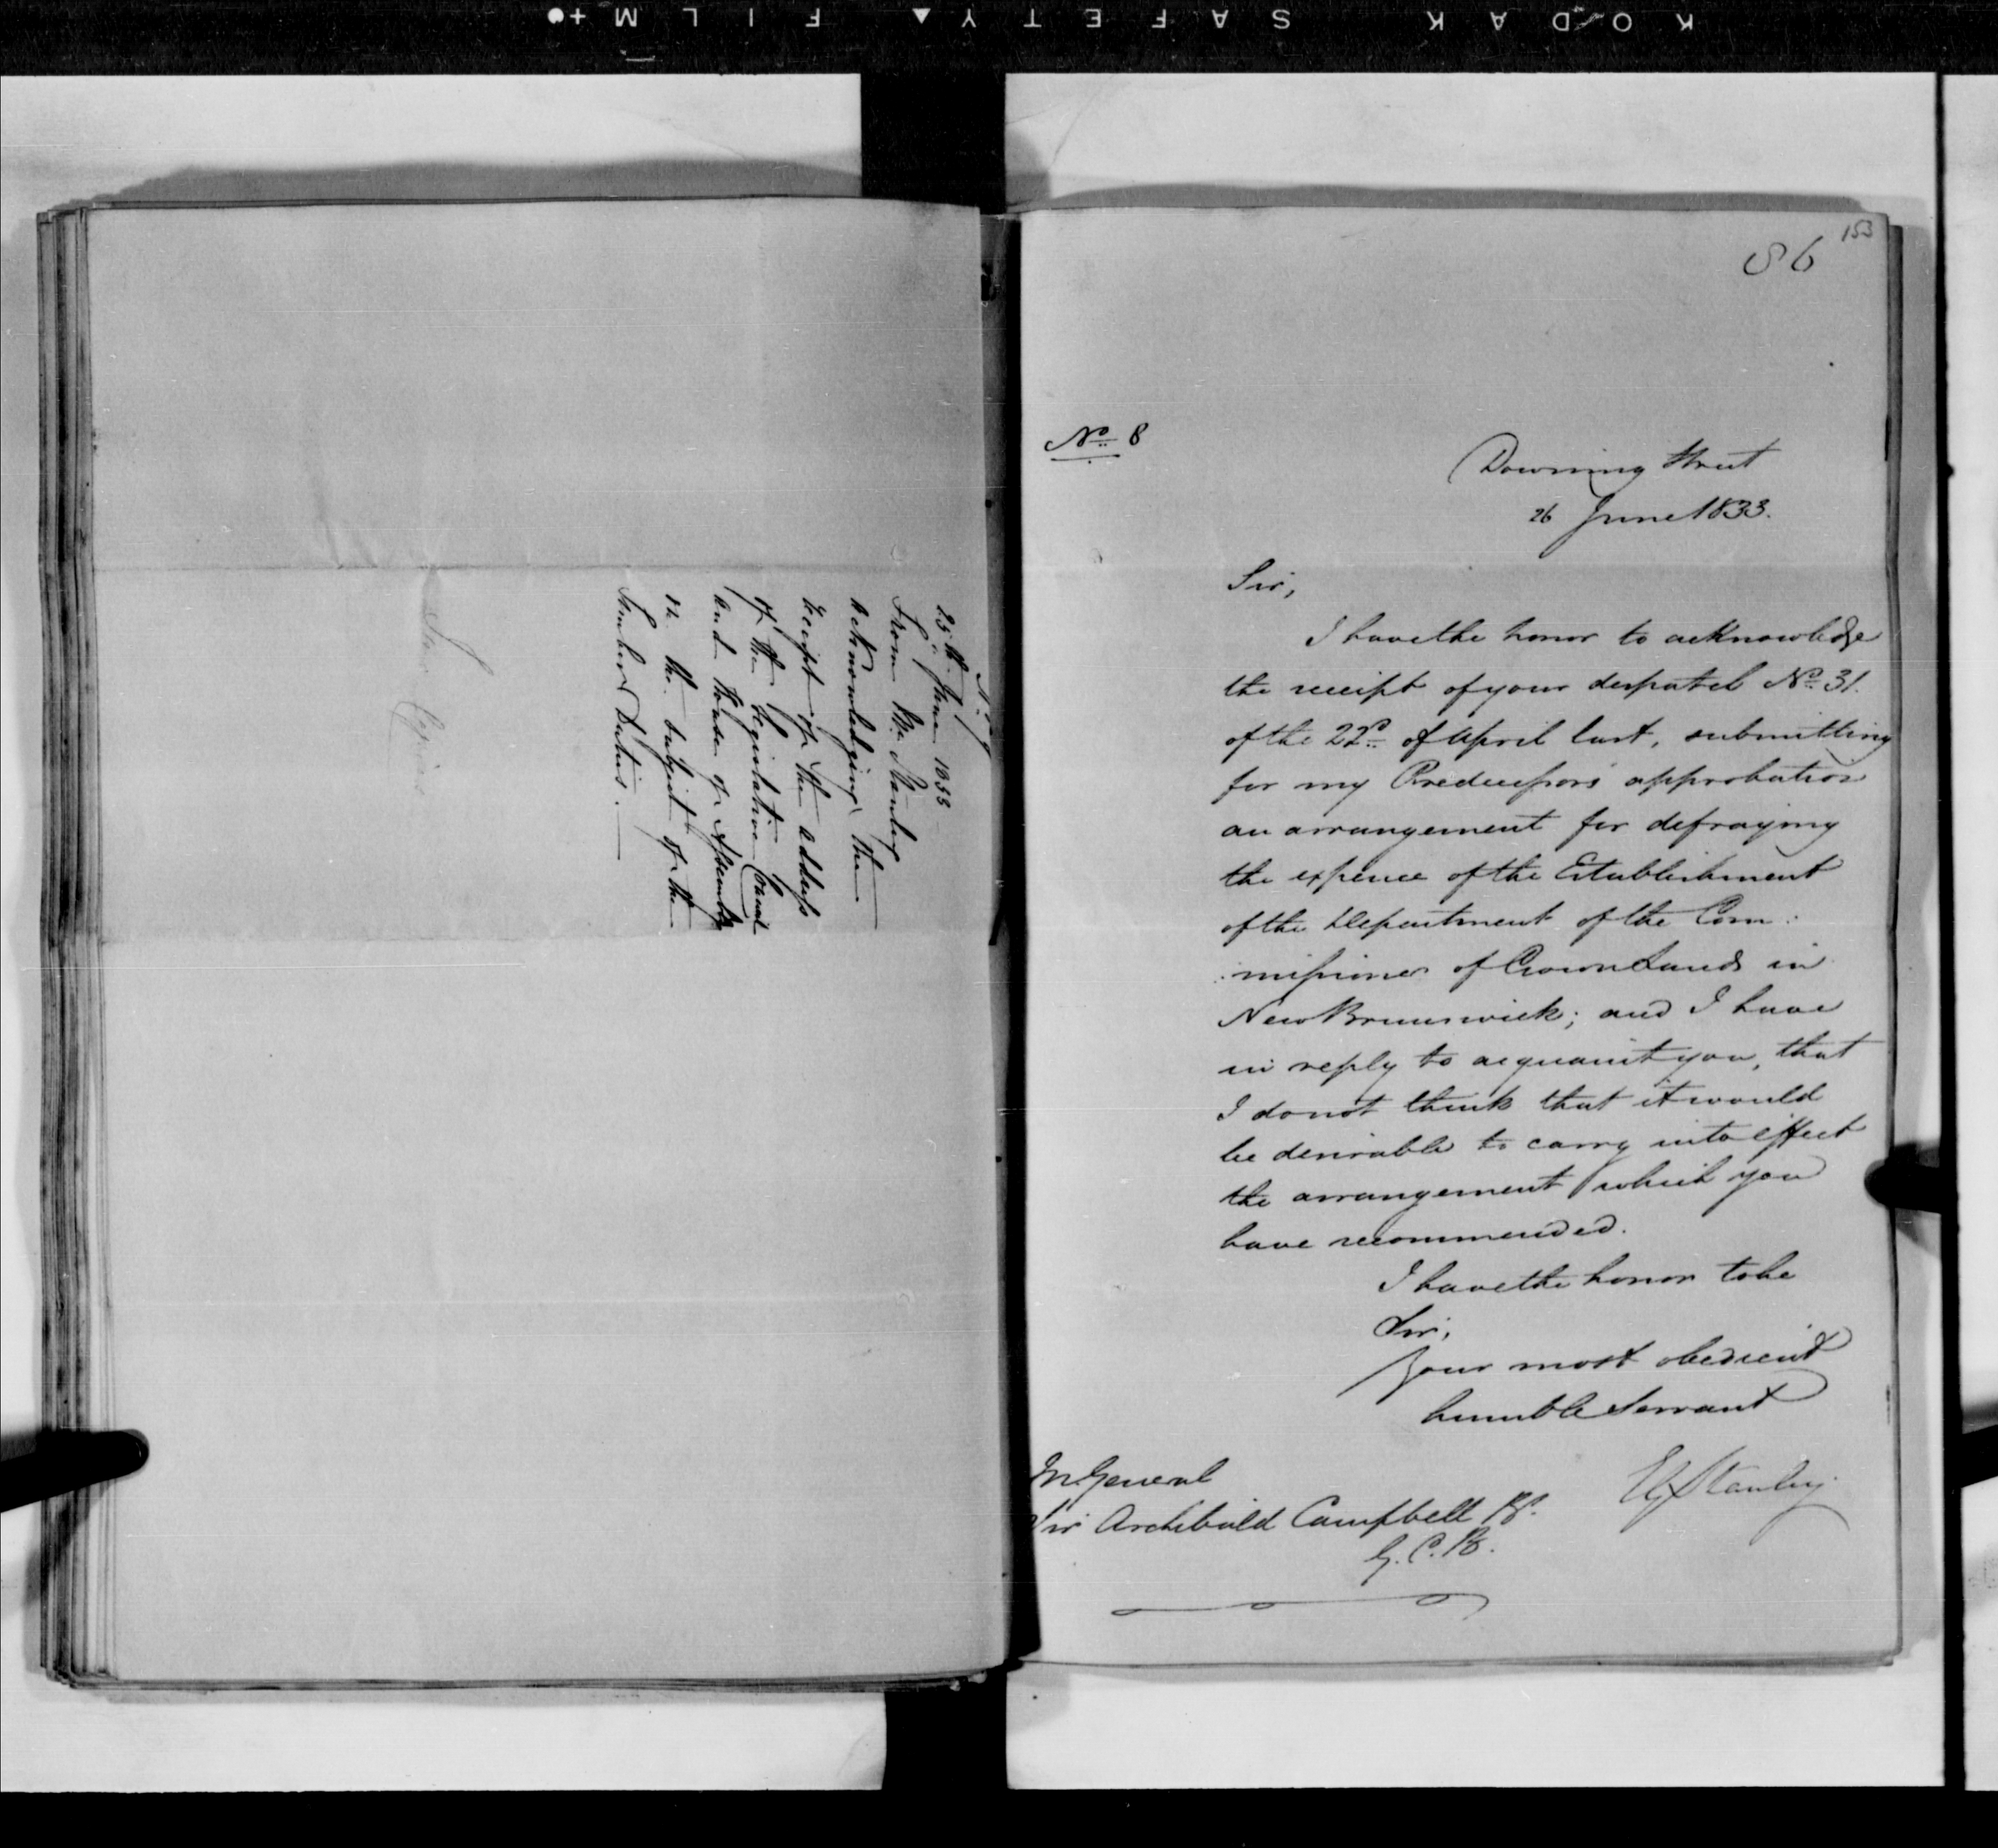 KODAK SAFETY FILM
No. 7
25th. June 1833
From Mr. Stanley
acknowledging the
receipt of the address
of the Legislative Council
and House of Assembly
on the subject of the
Timber Duties.
153
86
No. 8
Downing Street
26 June 1833.
Sir,
I have the honor to acknowledge
the receipt of your despatch No. 31.
of the 22d. of April last, submitting
for my Predecessors approbation
an arrangement for defraying
the expence of the Establishment
of the Department of the Com:
:missioner of Crown Lands in
New Brunswick; and I have
in reply to acquaint you, that
I do not think that it would
be desirable to carry into effect
the arrangement which you
have recommended.
I have the honor to be
Sir,
Your most obedient
humble Servant
EGStanley
M. General
Sir Archibald Campbell Bt.
G.C.B.